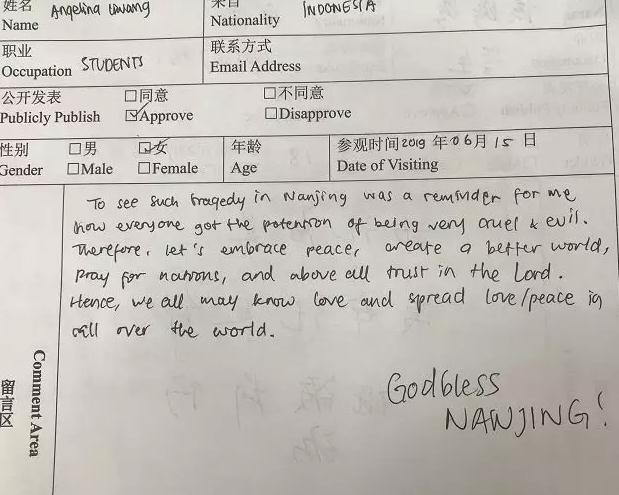 姓名 Angelina 来自 INDONESIA
Name Nationality
职业 联系方式
Occupation STUDENTS Email Address
公开发表 □同意 □不同意
Publicly Publish ☑Approve □Disapprove
性别 □男 ☑女 年龄 参观时间2019年06月15日
Gender □Male □Female Age Date of Visiting
To see such tragedy in Nanjing was a reminder for me
how everyone got the potention of being very cruel & evil.
Therefore, let's embrace peace, create a better world,
pray for nations, and above all trust in the Lord.
Hence, we all may know love and spread love/peace in
all over the world.
God bless
NANJING!
Comment Area
留言区